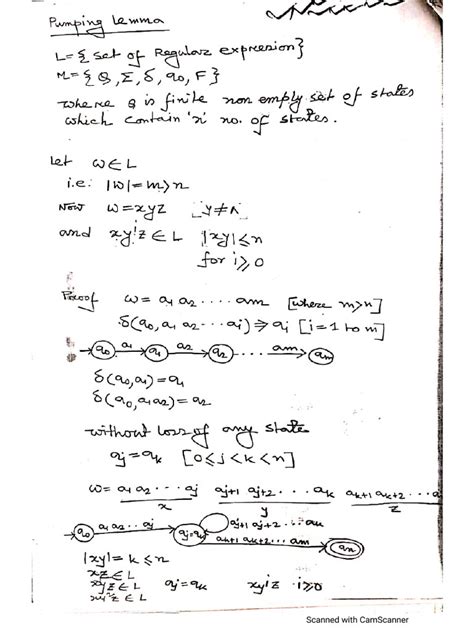 Pumping Lemma
L = { Set of Regular expression}
M = { Q, Σ, δ, q0, F }
where Q is finite non empty set of states
which contain 'n' no. of states.
Let w ∈ L
i.e. |w| = m > n
Now w = xyz [y ≠ Λ]
and xy^i z ∈ L |xy| ≤ n
for i ≥ 0
Proof w = a1 a2 .... am [where m > n]
δ(q0, a1 a2 ... ai) ⇒ qi [i = 1 to m]
q0 a1 q1 a2 q2 .... am qm
δ(q0, a1) = q1
δ(q0, a1 a2) = q2
without loss of any state
qj = qk [0 ≤ j < k < n]
w = a1 a2 ... aj aj+1 aj+2 ... ak ak+1 ak+2 ...
x y z
q0 a1 a2 .. aj qj=qk aj+1 aj+2 ... ak
ak+1 ak+2 ... am
|xy| = k ≤ n
xz ∈ L
xyz ∈ L qj = qk xy^i z i ≥ 0
xy^i z ∈ L
Scanned with CamScanner